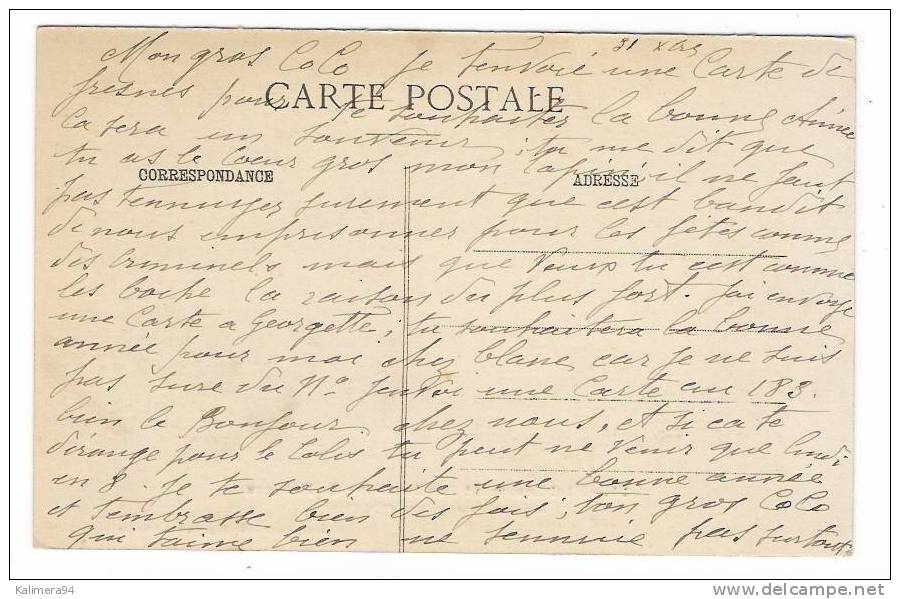 31 Xbre
Mon gros CoCo je tenvoie une Carte de
fresnes pour te souhaiter la bonne Année
CARTE POSTALE
Ca sera un souvenir, tu me dit que
tu as le Coeur gros mon lapin, il ne faut
CORRESPONDANCE
ADRESSE
pas tennuyer surement que cest bandit
de nous emprisonner pour les fêtes comme
des Criminels mais que veux tu cest comme
les boche la raison du plus fort. Jai envoyé
une Carte a Georgette, tu souhaitera la bonne
année pour moi chez blanc car je ne suis
pas sure du No jenvoi une Carte au 183.
bien le Bonjour chez nous, et si ca te
dérange pour le Colis tu peut ne venir que lundi
en 8. Je te souhaite une bonne année
et tembrasse bien des fois, ton gros CoCo
qui taime bien ne tennuie pas surtout
Kalimera94
www.delcampe.net